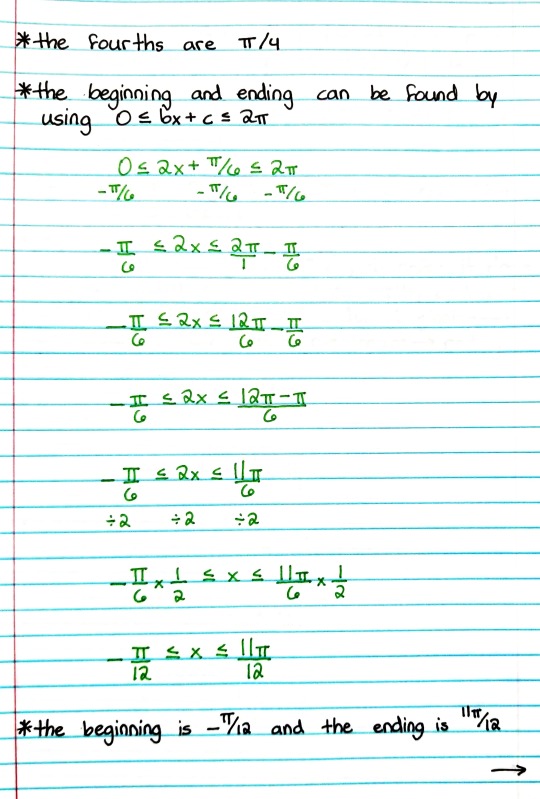 *the fourths are π/4
*the beginning and ending can be found by
using 0 ≤ bx + c ≤ 2π
0 ≤ 2x + π/6 ≤ 2π
-π/6 -π/6 -π/6
-π/6 ≤ 2x ≤ 2π/1 - π/6
-π/6 ≤ 2x ≤ 12π/6 - π/6
-π/6 ≤ 2x ≤ (12π - π)/6
-π/6 ≤ 2x ≤ 11π/6
÷2 ÷2 ÷2
-π/6 × 1/2 ≤ x ≤ 11π/6 × 1/2
-π/12 ≤ x ≤ 11π/12
*the beginning is -π/12 and the ending is 11π/12
→